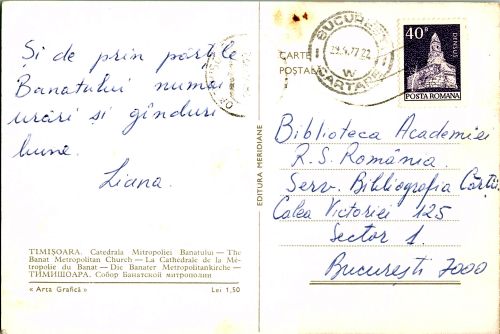 Și de prin părțile
Banatului numai
urări și gînduri
bune.
Liana.
TIMIȘOARA. Catedrala Mitropoliei Banatului — The
Banat Metropolitan Church — La Cathédrale de la Mé-
tropolie du Banat — Die Banater Metropolitankirche —
ТИМИШОАРА. Собор Банатской митрополии
« Arta Grafică »
Lei 1,50
EDITURA MERIDIANE
CARTE
POȘTALĂ
BUCUREȘTI
CARTARE
W
40B
DENSUȘ
POSTA ROMANA
Biblioteca Academiei
R.S. România.
Serv. Bibliografia Cărții
Calea Victoriei 125
Sector 1.
București 7000